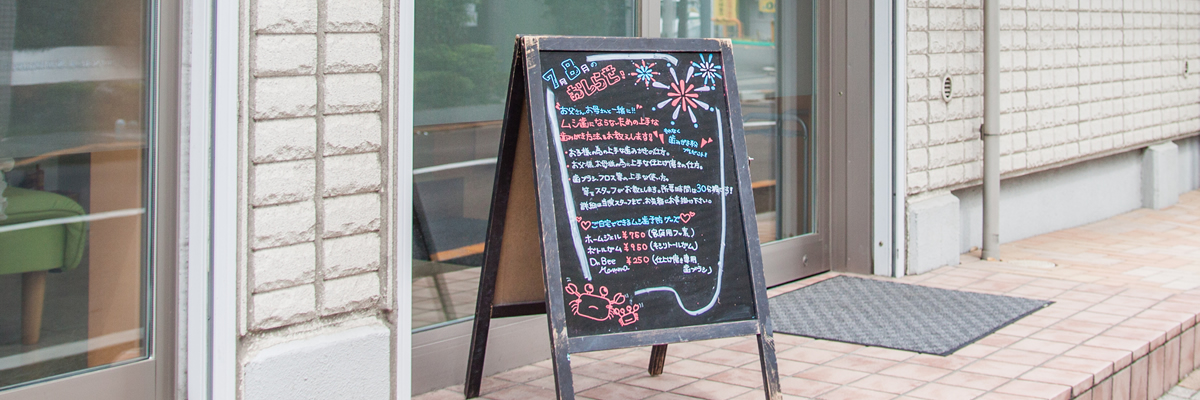 7月8月の
おしらせ!
お父さん、お母さんと一緒に!!
ムシ歯にならないための上手な
歯みがき方法をお教えします!!
・お子様の為の上手な歯みがきの仕方。
・お父様、お母様の為の上手な仕上げ磨きの仕方。
・歯ブラシ、フロス等の上手な使い方。
等をスタッフがお教えします。所要時間は30分程です!
詳細は当院スタッフまで、お気軽にお尋ね下さい。
ご自宅でできるムシ歯予防グッズ
ホームジェル ¥750 (家庭用フッ素)
ボトルガム ¥950 (キシリトールガム)
Dr.Bee ¥250 (仕上げ磨き専用
歯ブラシ)